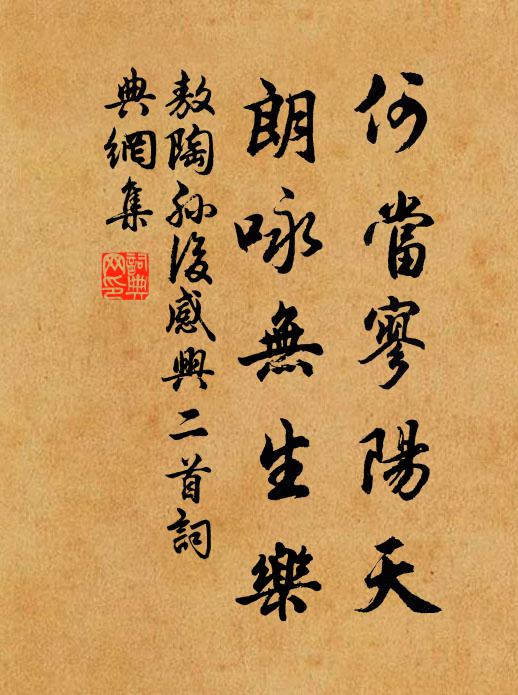 何當寥陽天
朗咏無生樂
敖陶孫後感興二首詞
典網集
詞典
网印